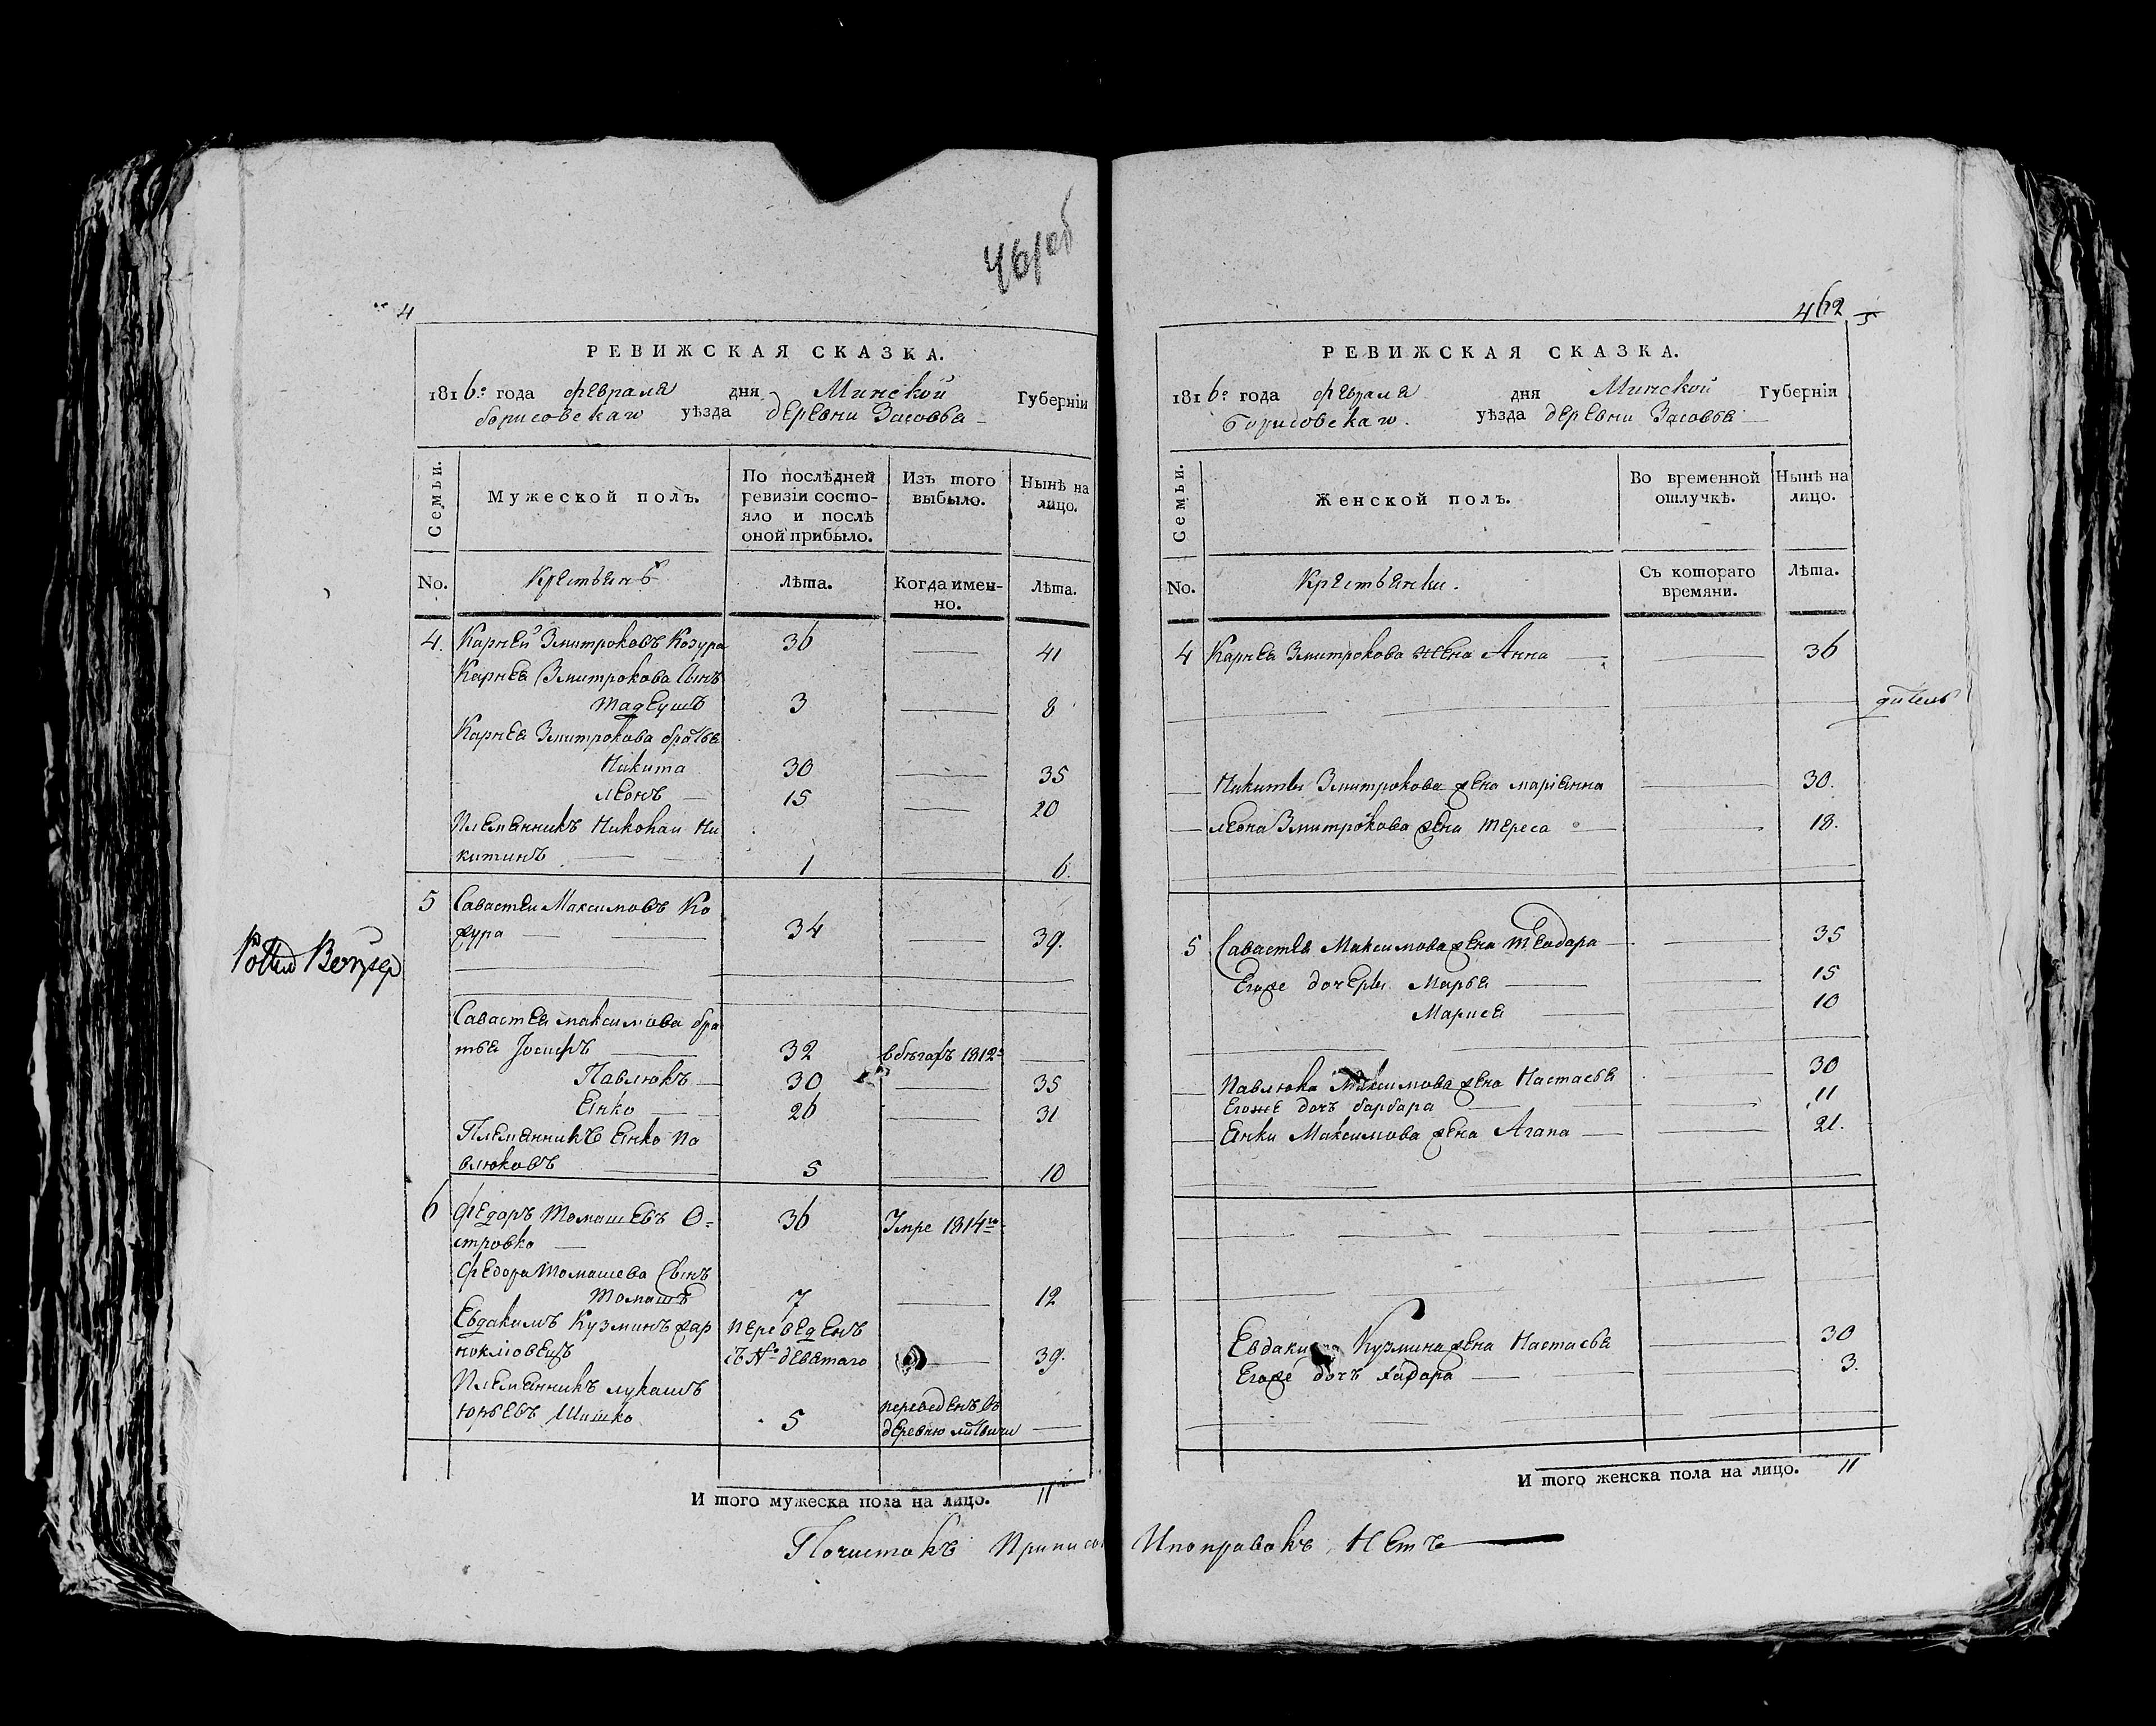 461об
4
РЕВИЖСКАЯ СКАЗКА.
1816го года февраля дня Минской Губерніи
борисовскаго уѣзда деревни Засовья
Семьи. Мужеской полъ. По послѣдней ревизіи состояло и послѣ оной прибыло. Изъ того выбыло. Нынѣ на лицо.
No. Крестьянъ Лѣта. Когда именно. Лѣта.
4. Карней Змитроковъ Козура 36 41
Карнея Змитрокова сынъ
тадеушъ 3 8
Карнея Змитрокова братья
Никита 30 35
леонъ 15 20
племянникъ Николай Ни
китинъ 1 6.
5 Савастей Максимовъ Ко
зура 34 39.
Савастея максимова бра
тья Іосифъ 32 вбѣгахъ 1812го
Павлюкъ 30 35
Янко 26 31
Племянникъ Янко Па
влюковъ 5 10
6 федоръ томашевъ О=
стровко 36 Умре 1814го
федора томашева сынъ
томашъ 7 12
Евдакимъ Кузминъ переведенъ
съ № деватаго 39.
Племянникъ лукашъ
юрьевъ Шишко 5 переведенъ въ
деревню
И того мужеска пола на лицо. 11
462
5
РЕВИЖСКАЯ СКАЗКА.
1816го года февраля дня Минской Губерніи
Борисовскаго уѣзда деревни Засовья
Семьи. Женской полъ. Во временной отлучкѣ. Нынѣ на лицо.
No. Крестьянки. Съ котораго времяни. Лѣта.
4 Карнея Змитрокова жена Анна 36
Никиты Змитрокова жена маріянна 30.
леона Змитрокова жена тереса 18.
5 Савастея Максимова жена теадара 35
Егоже дочеры Марья 15
Марися 10
Павлюка Максимова жена Настасья 30
Егоже дочъ барбара 11
Янки Максимова жена Агапа 21.
Евдакима Кузмина жена Настасья 30
Егоже дочъ 3.
И того женска пола на лицо. 11
Почистокъ Приписокъ Ипоправокъ Нетъ